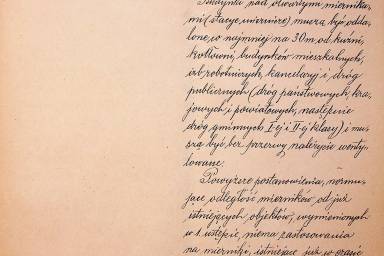 Budynki nad otwartymi miernika-
mi (stacye miernicze) muszą być odda-
lone, co najmniej na 30 m, od kuźni,
kotłowni, budynków mieszkalnych,
izb robotniczych, kancelaryj i dróg
publicznych (dróg państwowych, kra-
jowych i powiatowych, następnie
dróg gminnych I-ej i II-ej klasy) i mu-
szą być bez przerwy należycie wenty-
lowane.
Powyższe postanowienia, normu-
jące odległość mierników od już
istniejących objektów, wymienionych
w 1. ustępie, niema zastosowania
na mierniki, istniejące już w czasie